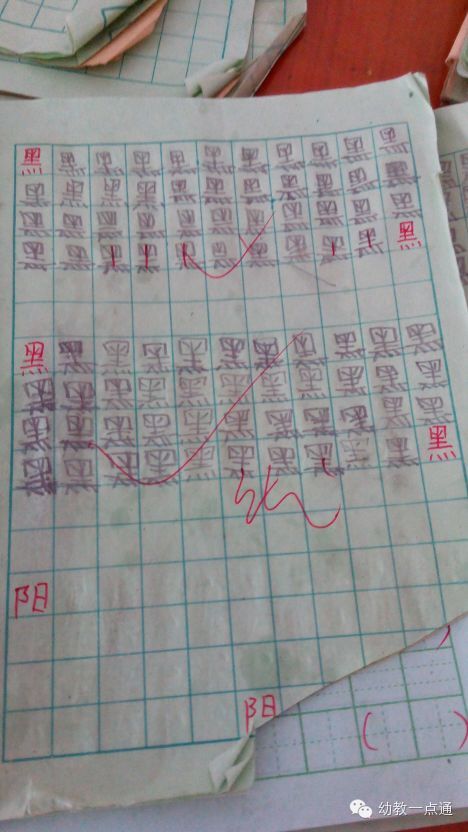 黑黑黑黑黑黑黑黑黑黑黑
黑黑黑黑黑黑黑黑黑黑黑
黑黑黑黑黑黑黑黑黑黑黑
黑黑黑黑黑黑黑黑黑黑黑
黑黑黑黑黑黑黑黑黑黑黑
黑黑黑黑黑黑黑黑黑黑黑
黑黑黑黑黑黑黑黑黑黑黑
黑黑黑黑黑黑黑黑黑黑黑
阳
阳
( )
幼教一点通